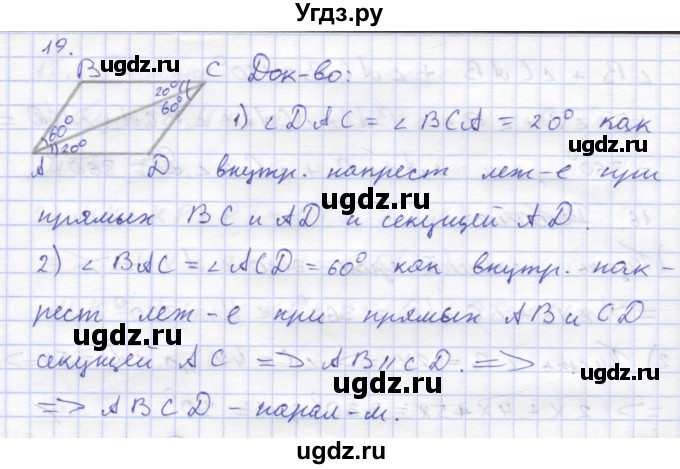 Угдз.ру
19.
ugdz.ru
B C Док-во:
20°
60°
60°
20°
1) ∠DAC = ∠BCA = 20° как
A D внутр. напрест леж-е при
прямых BC и AD и секущей AD.
ugdz.ru ugdz.ru
2) ∠BAC = ∠ACD = 60° как внутр. нак-
рест леж-е при прямых AB и CD
секущей AC => AB || CD. =>
ugdz.ru ugdz.ru
=> ABCD – парал-м.
ugdz.ru
Угдз.ру